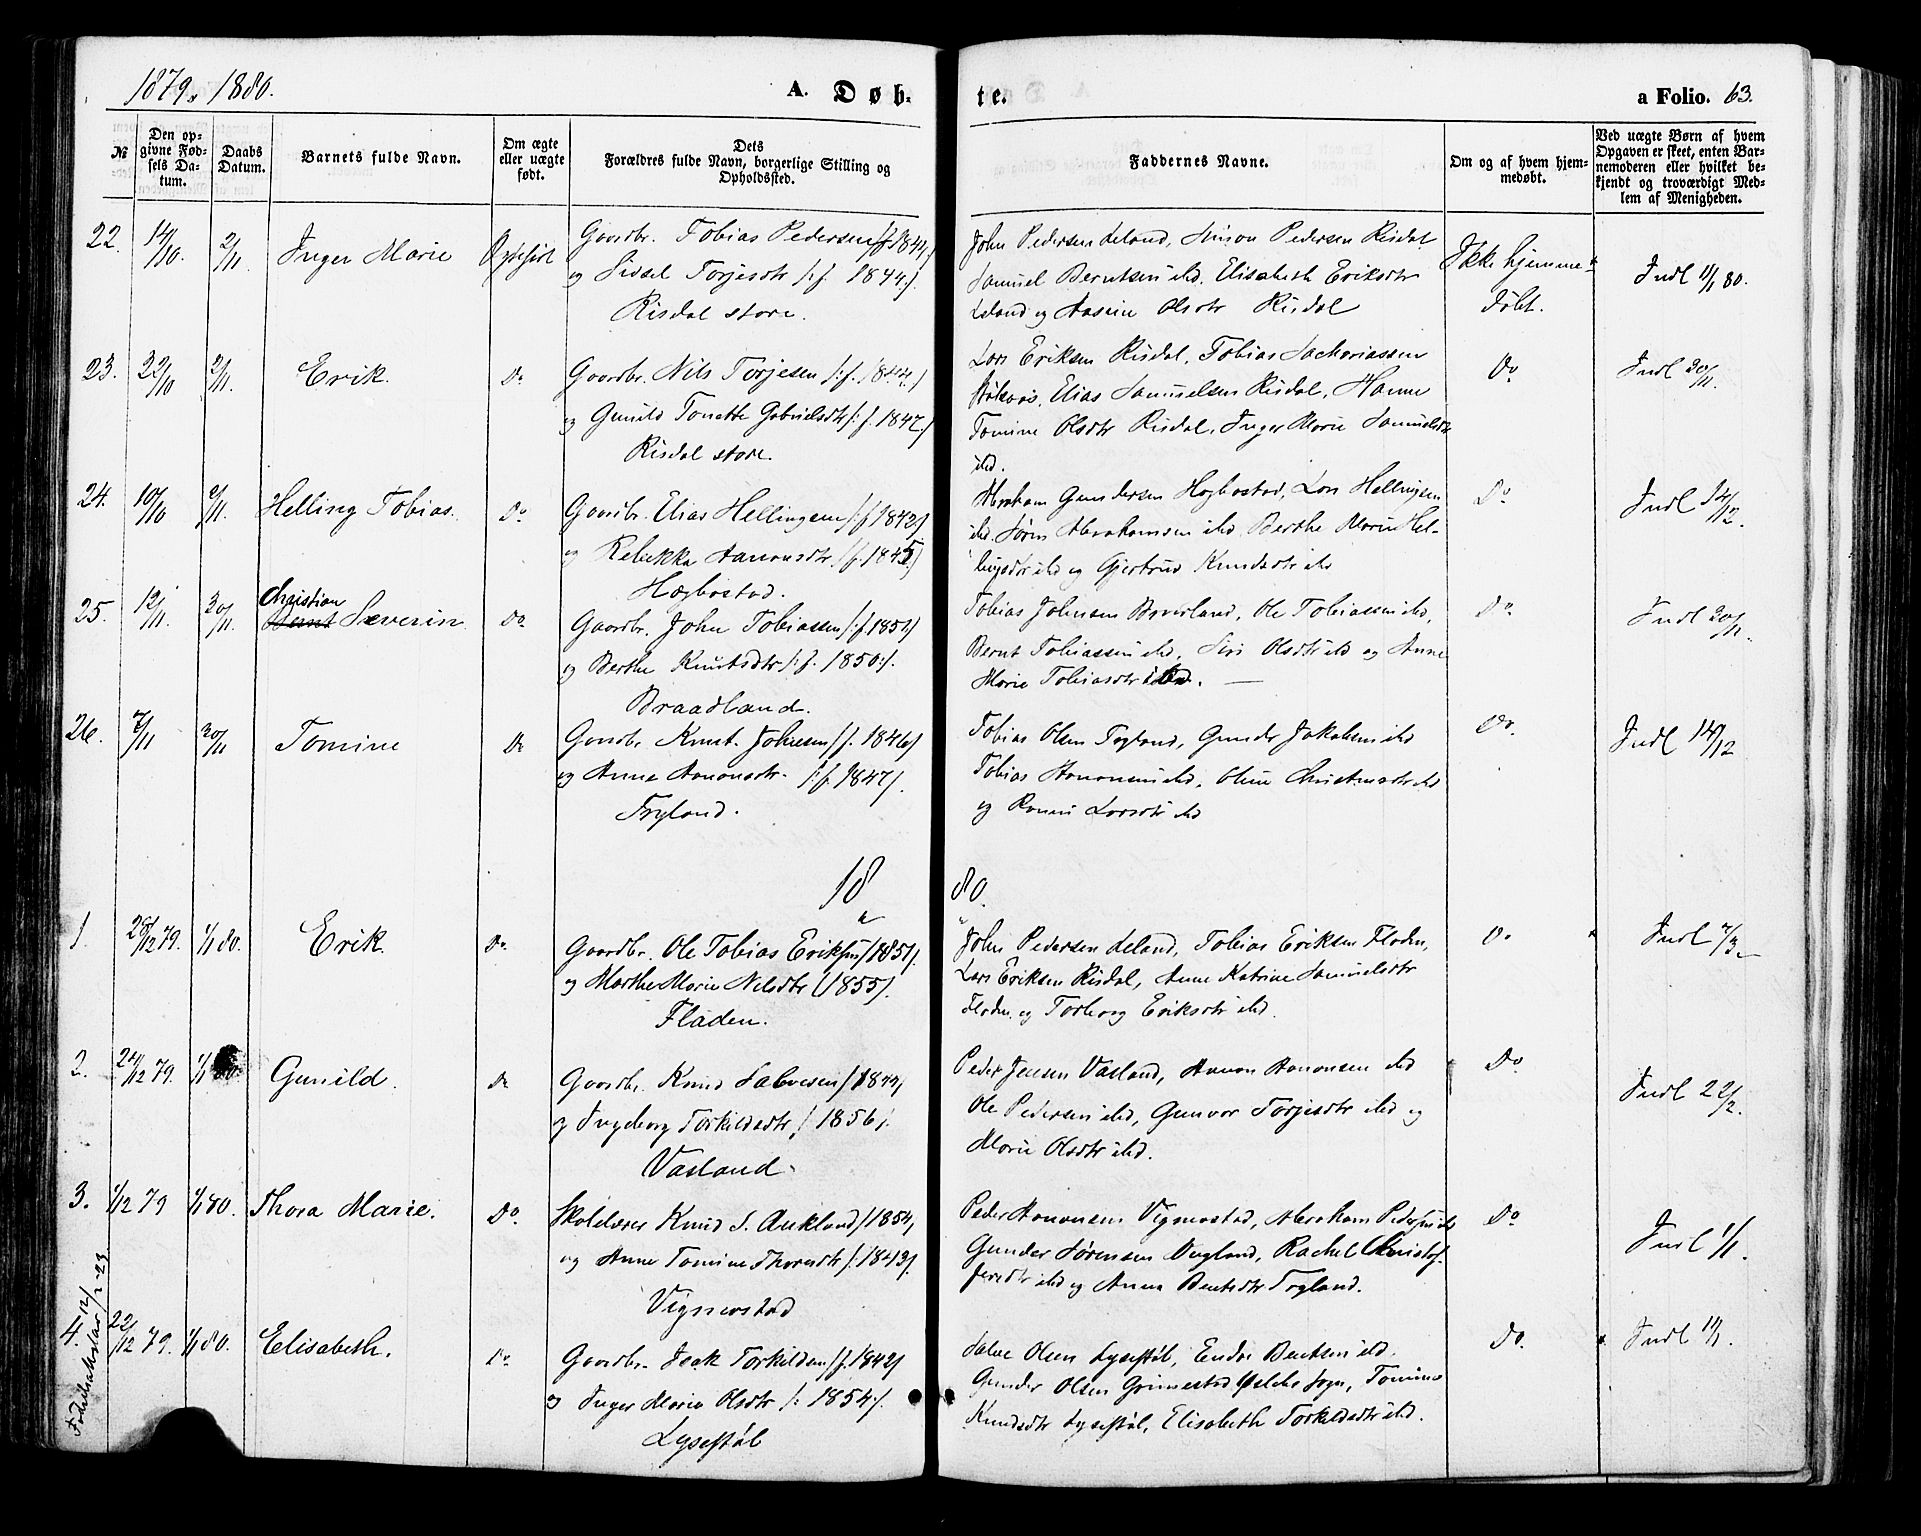 1879, 1880.
A. Døb-
te.
a Folio. 63.
№
Den op-
givne Fød-
sels Da-
tum.
Daabs
Datum.
Barnets fulde Navn.
Om ægte
eller uægte
født.
Dets
Forældres fulde Navn, borgerlige Stilling og
Opholdssted.
Faddernes Navne.
Om og af hvem hjem-
medøbt.
Ved uægte Børn af hvem
Opgaven er skeet, enten Bar-
nemoderen eller hvilket be-
kjendt og troværdigt Med-
lem af Menigheden.
22. 14/10. 2/11. Inger Marie
Gaardbr. Tobias Pedersen /: f. 1844 :/
og Sidsel Torjesdtr /: f. 1844 :/
Risdal store.
John Pedersen Leland, Simon Pedersen Risdal
Samuel Berntsen ibd. Elisabeth Eriksdtr
Leland og Aasine Olsdtr Risdal
Ikke hjemme-
døbt.
Indl 11/1 80.
23. 22/10 2/11. Erik. Do
Gaardbr. Nils Torjesen /: f. 1844 :/
og Gunild Tonette Gabrielsdtr /: f. 1847 :/
Risdal store.
Lars Eriksen Risdal, Tobias Sachariassen
Elias Samuelsen Risdal, Hanne
Tomine Olsdtr Risdal, Inger Marie Samuelsdtr
ibd.
Do
Indl 30/11.
24. 10/10 2/11. Helling Tobias. Do
Gaardbr. Elias Hellingsen /: f 1842 :/
og Rebekka Aanonsdtr /: f. 1845 :/
Hægbostad.
Abraham Gundersen Hægbostad, Lars Hellingsen
ibd. Søren Abrahamsen ibd. Berthe Marie Hel-
lingsdtr ibd og Gjertrud Knudsdtr ibd
Do
Indl 14/12.
25. 12/11. 30/11. Christian
Bernt Severin Do
Gaardbr. John Tobiassen /: f. 1851 :/
og Berthe Knutsdtr /: f. 1850 :/.
Braadland.
Tobias Johnsen Braadland, Ole Tobiassen ibd,
Bernt Tobiassen ibd, Siri Olsdtr ibd og Anne
Marie Tobiasdtr ibd.
Do
Indl 30/11.
26. 7/11 30/11 Tomine Do
Gaardbr. Knut Johnsen /: f. 1846 :/
og Anne Aanonsdtr. /: f. 1847 :/.
Fryland.
Tobias Olsen Fryland, Gunder Jakobsen ibd
Tobias Aanonsen ibd, Oline ibd
og Larsdtr ibd
Do.
Indl 14/12
18 80.
1. 28/12 79. 1/1 80. Erik. Do
Gaardbr. Ole Tobias Eriksen /: 1851 :/.
og Marthe Marie Nilsdtr /: 1855 :/.
Fladen.
John Pedersen Leland, Tobias Eriksen Fladen,
Lars Eriksen Risdal, Anne Katrine Samuelsdtr
Fladen, og Torborg Eriksdtr ibd.
Do
Indl 7/3
2. 12 79. 1/1 80. Gunild. Do
Gaardbr. Knud Salvesen /: 1844 :/
og Ingeborg Torkildsdtr /: 1856 :/.
Vasland.
Peder Jensen Vasland, Aanon Aanonsen ibd
Ole Pedersen ibd, Gunvor Torjesdtr ibd og
Marie Olsdtr ibd.
Do
Indl 22/2.
3. 1/12 79 1/1 80. Thora Marie. Do.
Skolelærer Knud S. Aukland /: 1854 :/
og Anne Tomine Thorsdtr /: 1843 :/.
Vigmostad
Peder Aanonsen Vigmostad, Abraham Pedersen ibd
Gunder Sørensen Rachel Christof-
fersdtr ibd og Anna Bentsdtr Fryland.
Do
Indl 1/1.
4. 22/12 79. 1/1 80. Elisabeth. Do
Gaardbr. Isak Torkildsen /: f. 1842 :/
og Inger Marie Olsdtr /: 1854 :/.
Lysestøl
Salve Olsen Lysestøl, Endre Bentsen ibd.
Gunder Olsen Grimestad Øslebø Sogn, Tomine
Knudsdtr Lysestøl, Elisabeth Torkildsdtr ibd.
Do.
Indl